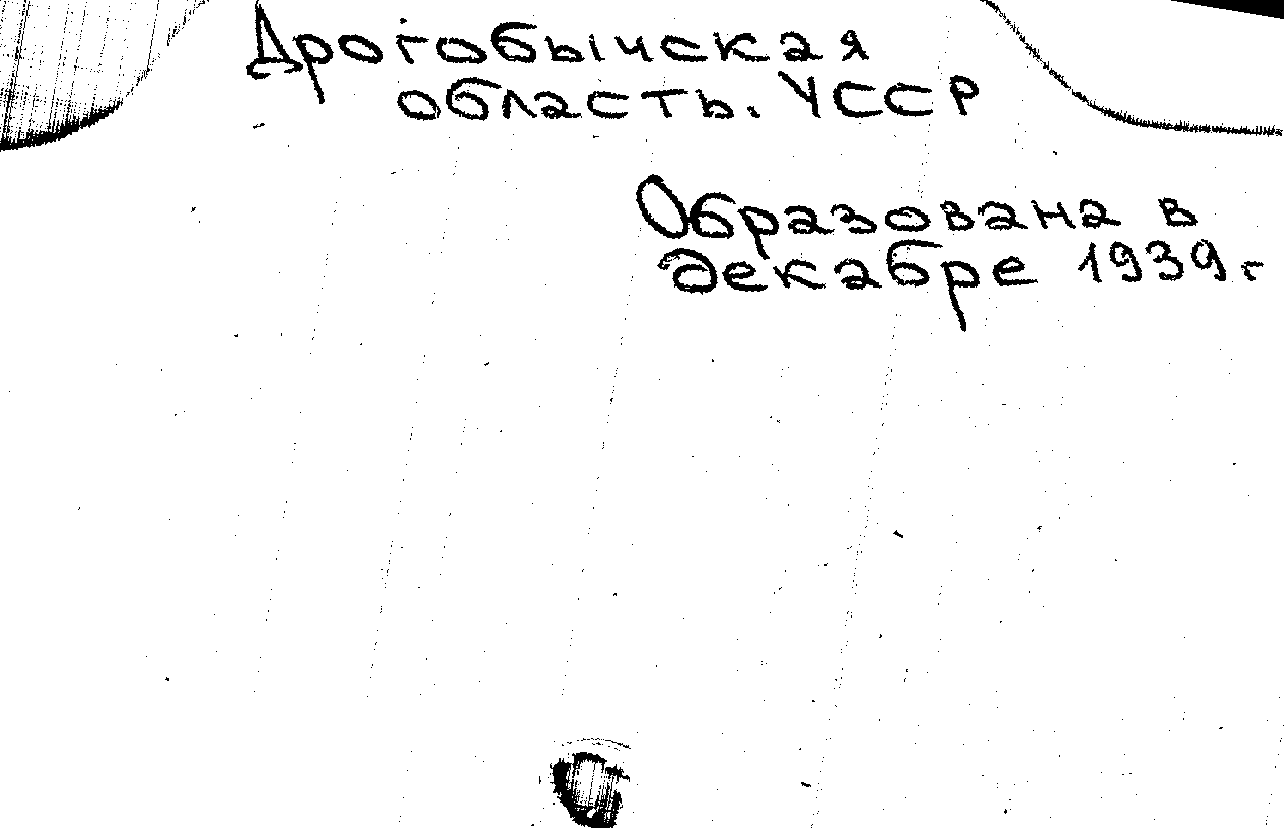 Дрогобычская
область. УССР
Образована в
декабре 1939 г